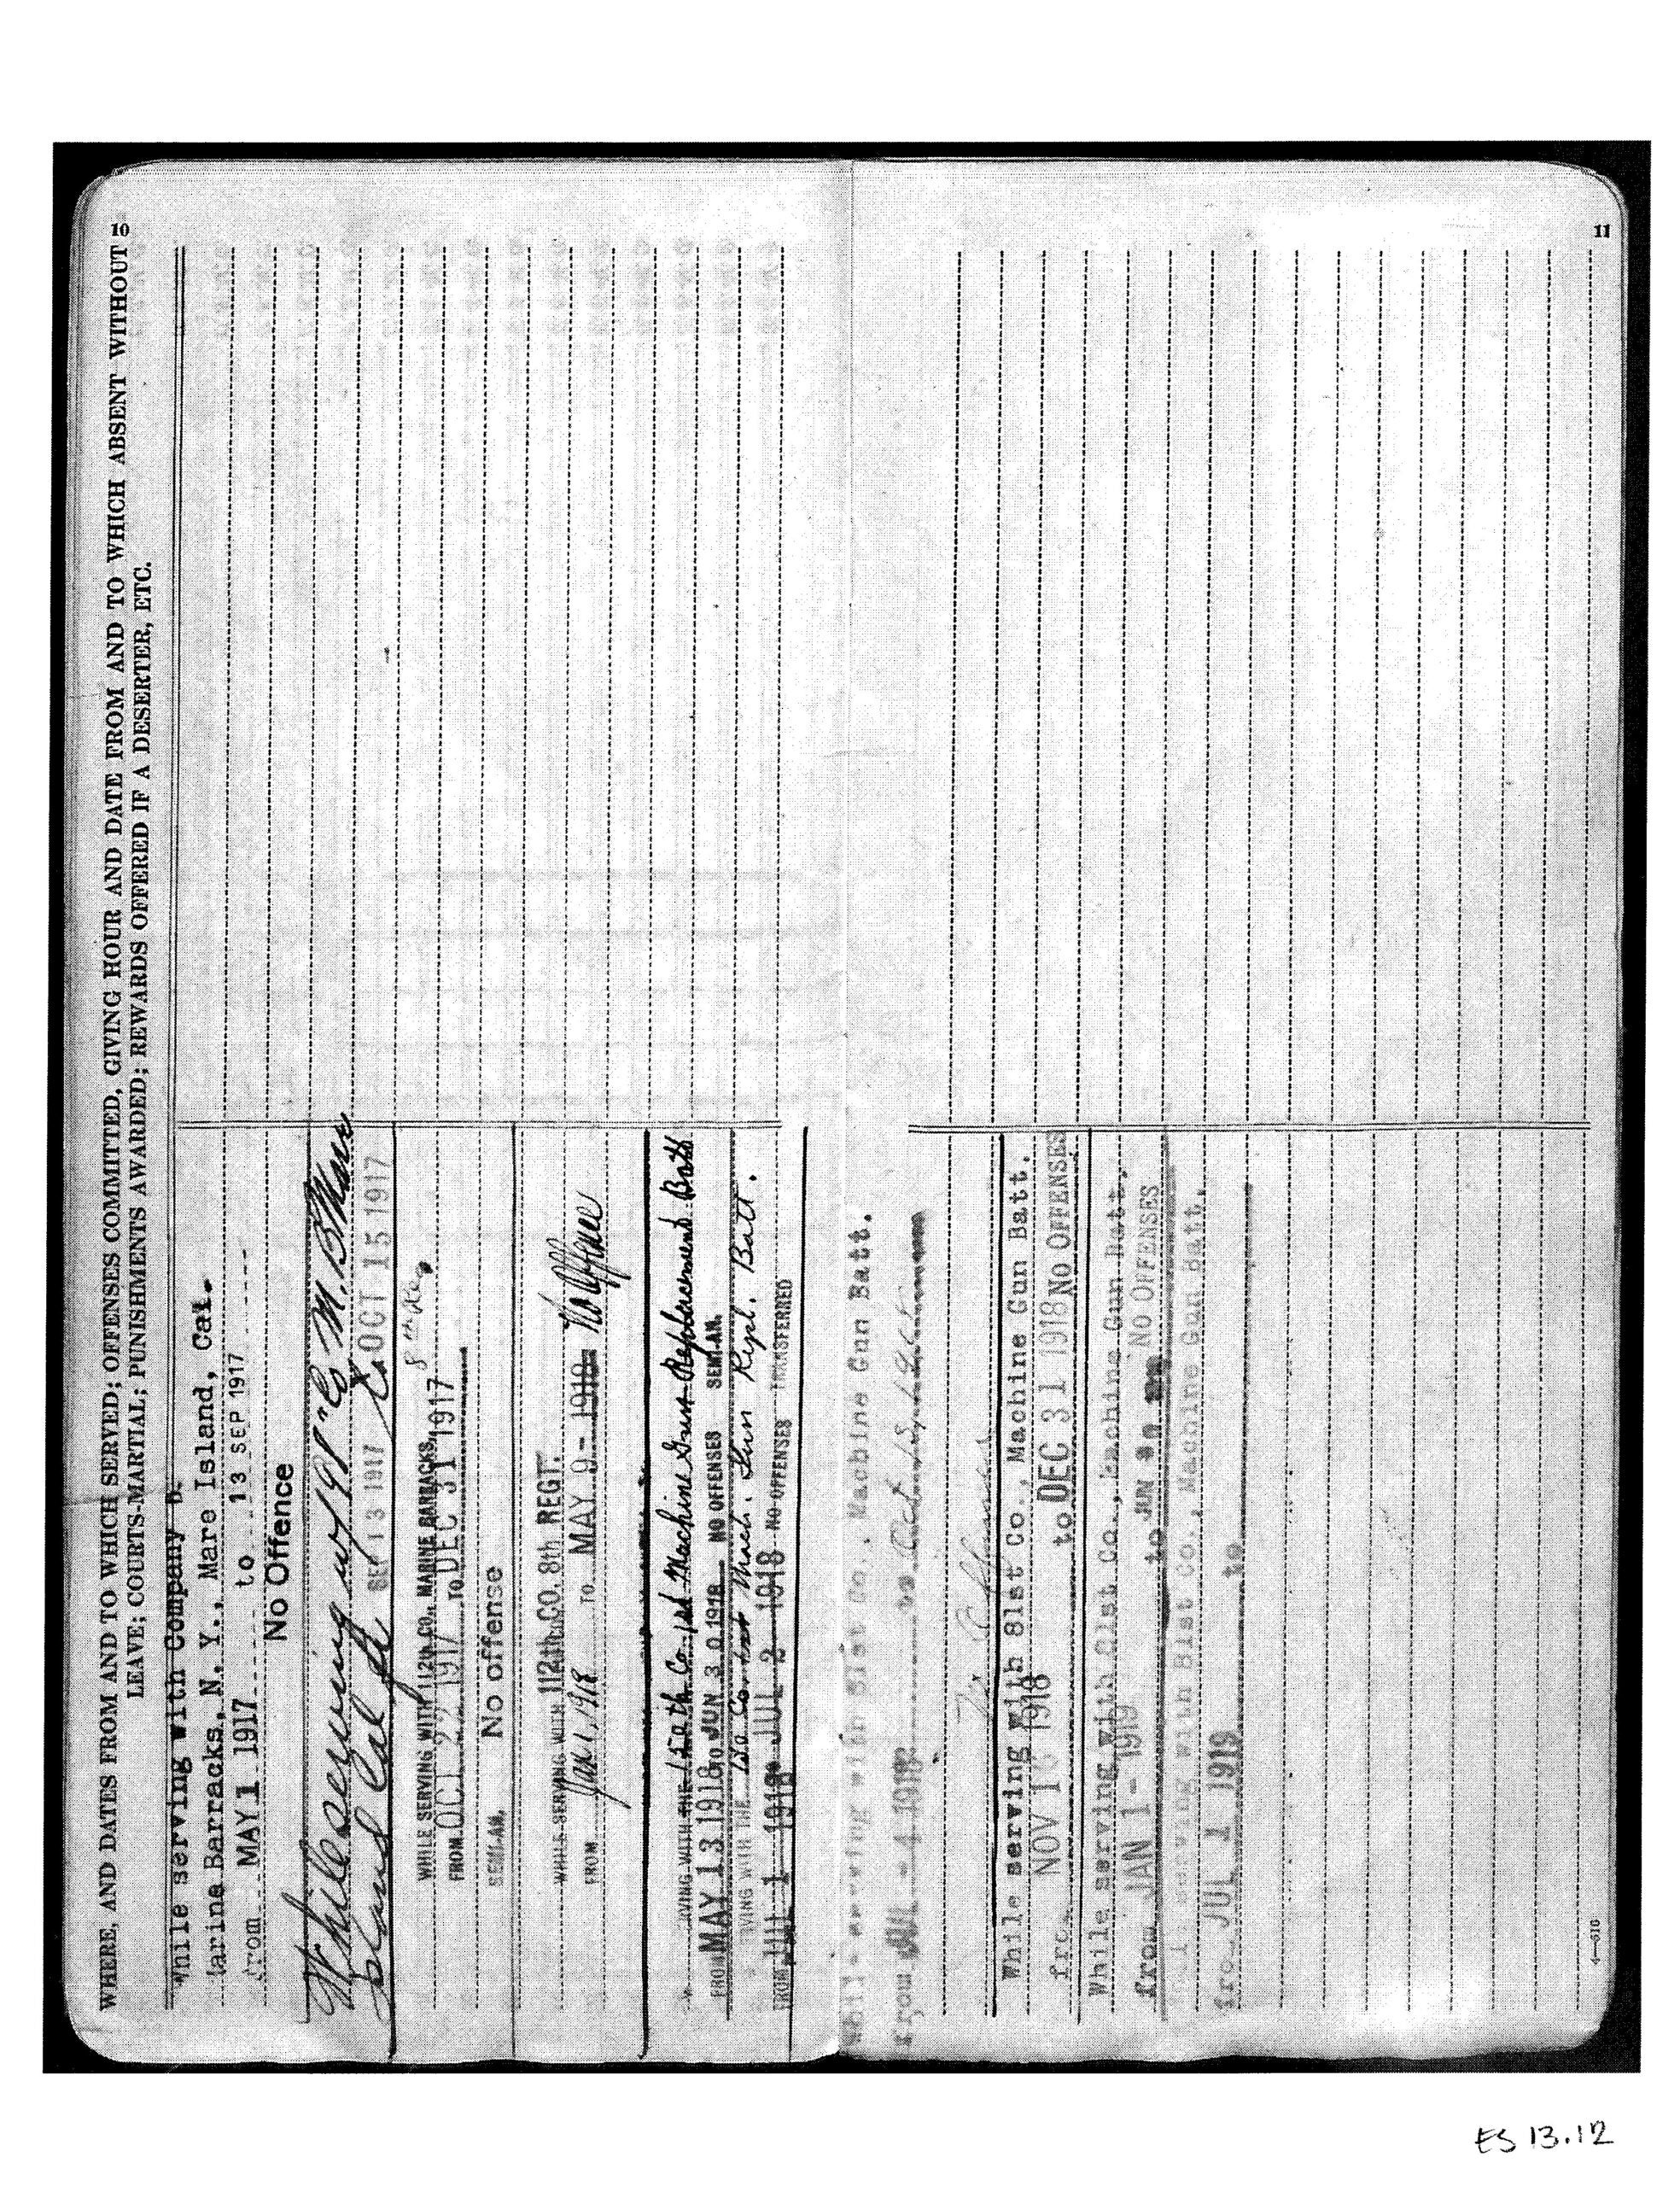 10
WHERE, AND DATES FROM AND TO WHICH SERVED; OFFENSES COMMITTED, GIVING HOUR AND DATE FROM AND TO WHICH ABSENT WITHOUT
LEAVE; COURTS-MARTIAL; PUNISHMENTS AWARDED; REWARDS OFFERED IF A DESERTER, ETC.
While serving with Company
Marine Barracks, N. Y., Mare Island, Cal.
from MAY 1 1917 to 13 SEP 1917
No Offence
While serving
Island Cal SEP 13 1917 to OCT 15 1917
WHILE SERVING WITH 112th CO., MARINE BARRACKS,
FROM OCT 22 1917 TO DEC 31 1917
SEMI-AN. No offense
WHILE SERVING WITH 112th CO. 8th REGT.
FROM Jan 1, 1918 TO MAY 9 - 1918 No Offense
SERVING WITH THE Co Machine Gun Replacement Batt
FROM MAY 13 1918 TO JUN 30 1918 NO OFFENSES SEMI-AN.
SERVING WITH THE Co. Mach. Gun Repl. Batt.
FROM JUL 1 1918 JUL 2 1918 NO OFFENSES TRANSFERRED
While serving with 81st Co., Machine Gun Batt.
from JUL - 4 1918 to
11
While serving with 81st Co., Machine Gun Batt.
from NOV 1918 to DEC 31 1918 NO OFFENSES
While serving with 81st Co., Machine Gun Batt.,
from JAN 1 - 1919 to JUN NO OFFENSES
While serving with 81st Co., Machine Gun Batt.
from JUL 1 1919 to
4—616
ES 13.12